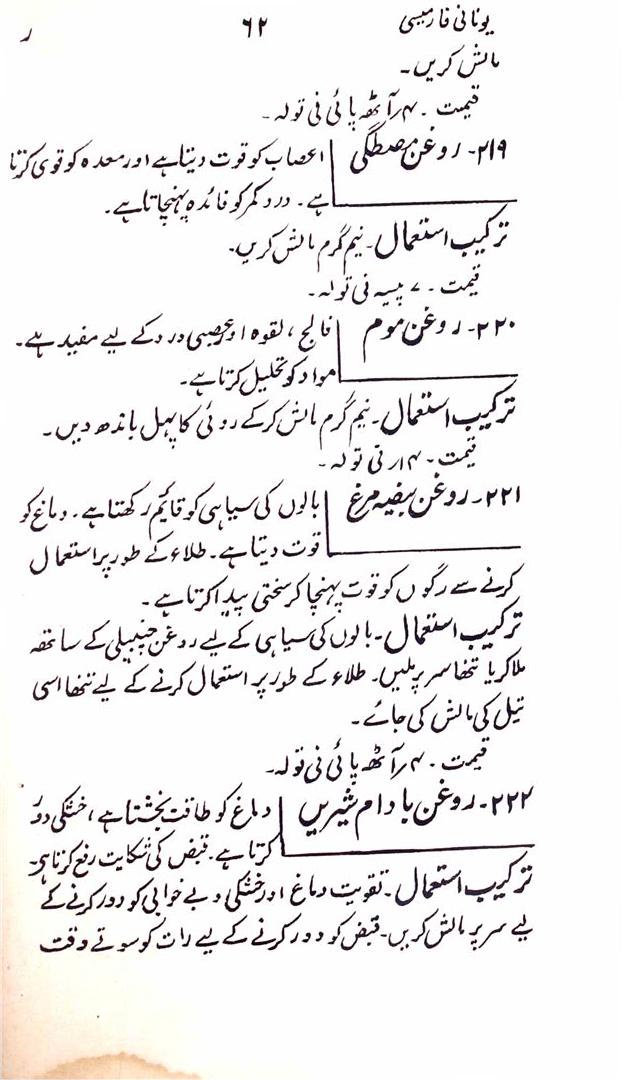 یونانی فارمیسی ۶۲ ر
مالش کریں۔
قیمت ۔ ۴ر آٹھ پائی فی تولہ ۔
۲۱۹۔ روغن مصطگی اعصاب کو قوت دیتا ہے اور معدہ کو قوی کرتا
ہے ۔ درد کمر کو فائدہ پہنچاتا ہے ۔
ترکیب استعمال ۔ نیم گرم مالش کریں۔
قیمت ۔ ۷ پیسہ فی تولہ ۔
۲۲۰۔ روغن موم فالج ، لقوہ اور عصبی درد کے لیے مفید ہے ۔
مواد کو تحلیل کرتا ہے ۔
ترکیب استعمال ۔ نیم گرم مالش کر کے روئی کا پہل باندھ دیں ۔
قیمت ۔ ۴ر فی تولہ ۔
۲۲۱۔ روغن بیضہ مرغ بالوں کی سیاہی کو قایٔم رکھتا ہے ۔ دماغ کو
قوت دیتا ہے ۔ طلاء کے طور پر استعمال
کرنے سے رگوں کو قوت پہنچا کر سختی پیدا کرتا ہے ۔
ترکیب استعمال ۔ بالوں کی سیاہی کے لیے روغن چنبیلی کے ساتھ
ملا کر یا تنہا سر پر ملیں۔ طلاء کے طور پر استعمال کرنے کے لیے تنہا اسی
تیل کی مالش کی جائے ۔
قیمت ۔ ۴ر آٹھ پائی فی تولہ ۔
۲۲۲۔ روغن بادام شیریں دماغ کو طاقت بخشتا ہے ، خشکی دور
کرتا ہے ۔ قبض کی شکایت رفع کرتا ہے۔
ترکیب استعمال ۔ تقویت دماغ اور خشکی و بے خوابی کو دور کرنے کے
لیے سر پر مالش کریں ۔ قبض کو دور کرنے کے لیے رات کو سوتے وقت